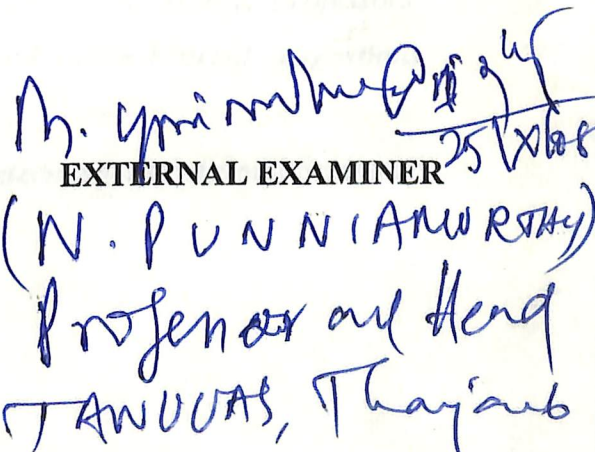 25/XI/08
EXTERNAL EXAMINER
(N. PUNNIAMURTHY)
Professor and Head
TANUVAS, Thanjavur